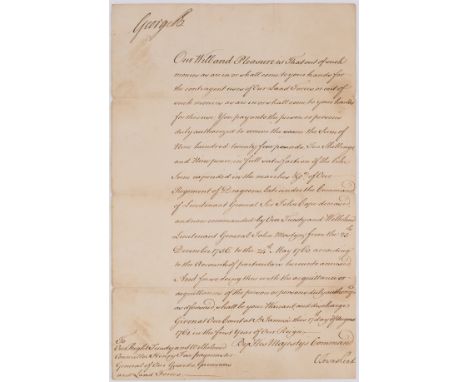 George R
Our Will and Pleasure is That out of such
monies as are or shall come to your hands for
the contingent uses of Our Land Forces or out of
such monies as are or shall come to your hands
for this use You pay unto the person or persons
duly authorized to receive the same the Sum of
Nine hundred twenty five pounds Ten Shillings
and Nine pence in full satisfaction of the like
Sum expended in the marches of Our
Regiment of Dragoons late under the Command
of Lieutenant General Sir John Cope deceased
and now commanded by Our Trusty and Wellbeloved
Lieutenant General John Mostyn from the 25th
December 1756 to the 24th May 1760 according
to the Account of particulars hereunto annexed
And for so doing this with the acquittance or
acquittances of the person or persons duly authorized
as aforesaid, shall be your Warrant and discharge
Given at Our Court at St. James's this 17th day of
1761 in the first Year of Our Reign
By His Majestys Command
To
Our Right Trusty and Wellbeloved
Henry Fox paymaster
General of Our Guards Garrisons
and Land Forces